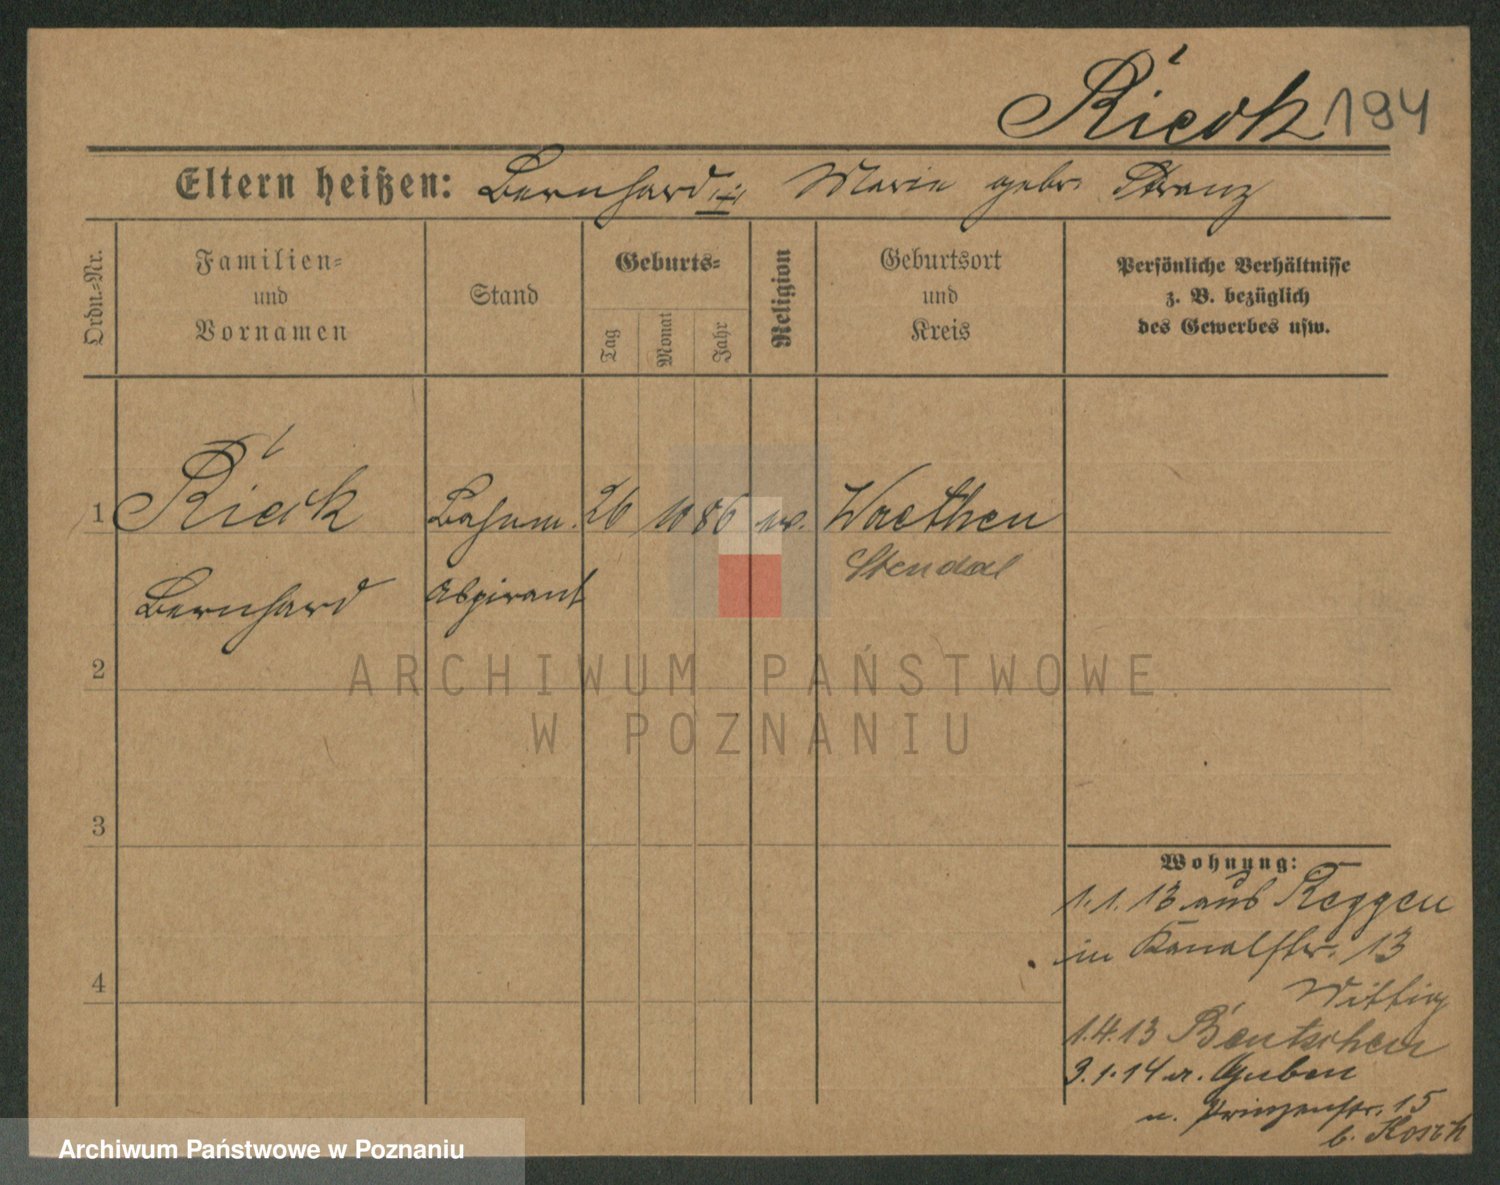 Rieck 194
Eltern heißen: Bernhard Marie geb.
Ordn.-Nr.
Familien-
und
Vornamen
Stand
Geburts-
Tag
Monat
Jahr
Religion
Geburtsort
und
Kreis
Persönliche Verhältnisse
z. B. bezüglich
des Gewerbes usw.
1 Rieck Bahnm. 26 10 86 Waethen
Stendal
Bernhard Aspirant
2
ARCHIWUM PAŃSTWOWE
W POZNANIU
3
Wohnung:
1.1.13 aus Reggen
in Kanalstr. 13
Wittig
4
1.4.13 Bentschen
3.1.14 a. Guben
n. Prinzenstr. 15
b. Kosch
Archiwum Państwowe w Poznaniu